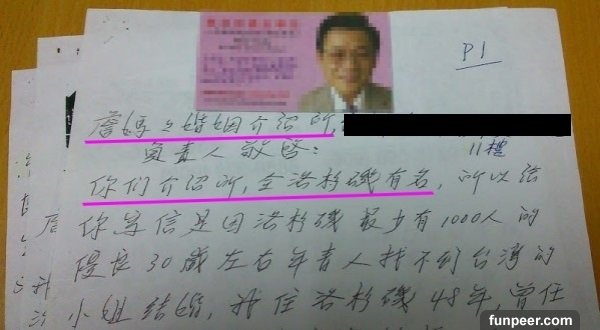 P1
詹媽媽婚姻介紹所,
負責人敬啓: 11樓
你们介紹所,全洛杉磯有名,所以給
你写信是因洛杉磯最少有1000人的
優良30歲左右年青人找不到台湾的
小姐結婚,我住洛杉磯48年,曾任
funpeer.com